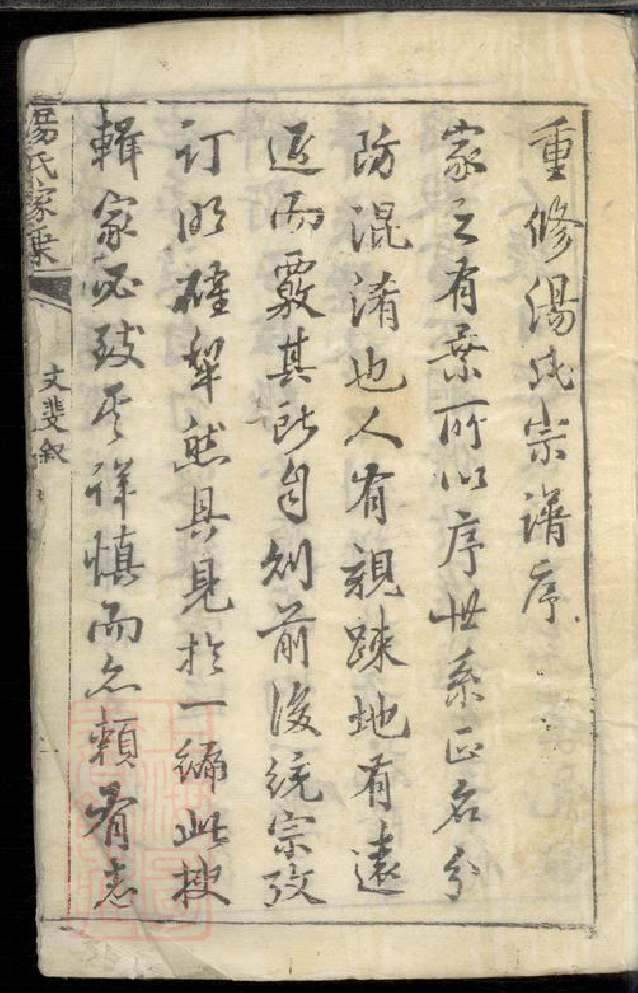 重修湯氏宗譜序
家之有乘所以序世系正名分
防混淆也人有親踈地有遠
近而覈其所自則前後統宗攷
訂明確犂然具見於一編此搜
輯家必致其詳慎而尤賴有志
湯氏家乘
文斐叙